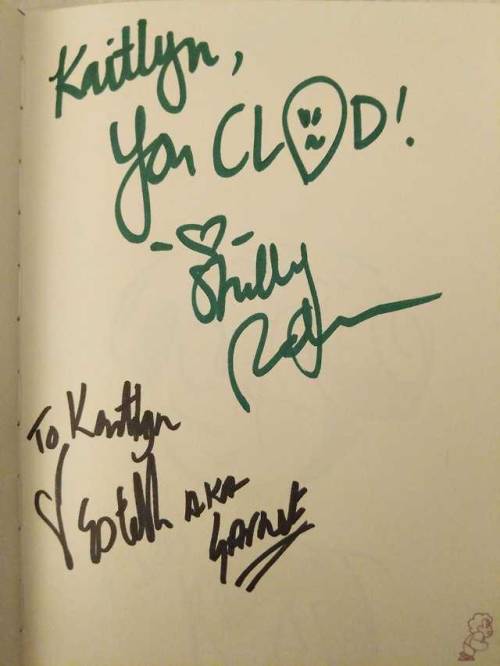 Kaitlyn,
You CLOD!
- Shelby
Rabara
To Kaitlyn
Estelle AKA
GARNET